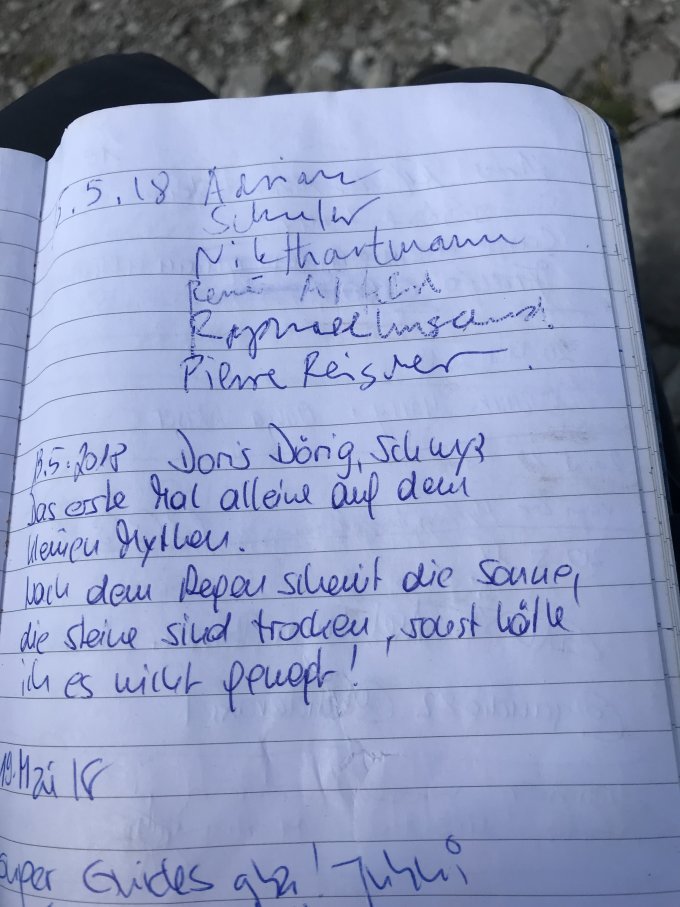 .5.18 Adrian
Schuler
Nik Hartmann
René
Raphael
Pierre Reis
.5.2018 Doris Dörig, Schwyz
Das erste Mal alleine auf dem
kleinen Mythen.
Nach dem Regen scheint die Sonne,
die Steine sind trocken, sonst hätte
ich es nicht gewagt!
19. Mai 18
Super Guides gha! Juhui